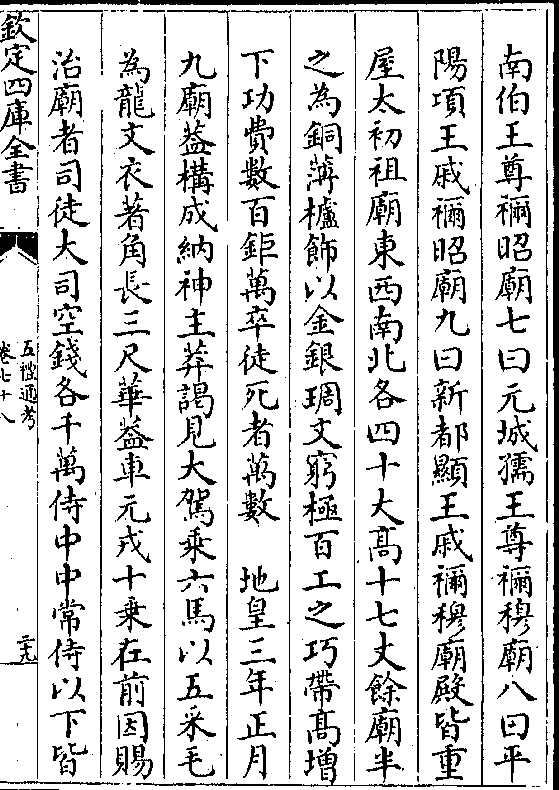 南伯王尊禰昭廟七曰元城孺王尊禰穆廟八曰平
陽項王戚禰昭廟九曰新都顯王戚禰穆廟殿皆重
屋太初祖廟東西南北各四十大髙十七丈餘廟半
之為銅薄櫨飾以金銀琱文窮極百工之巧帶髙増
下功費數百鉅萬卒徒死者萬數　地皇三年正月
九廟葢構成納神主莽謁見大駕乘六馬以五采毛
為龍文衣著角長三尺華葢車元戎十乘在前因賜
治廟者司徒大司空錢各千萬侍中中常侍以下皆
欽定四庫全書
五禮通考
卷七十八
二九